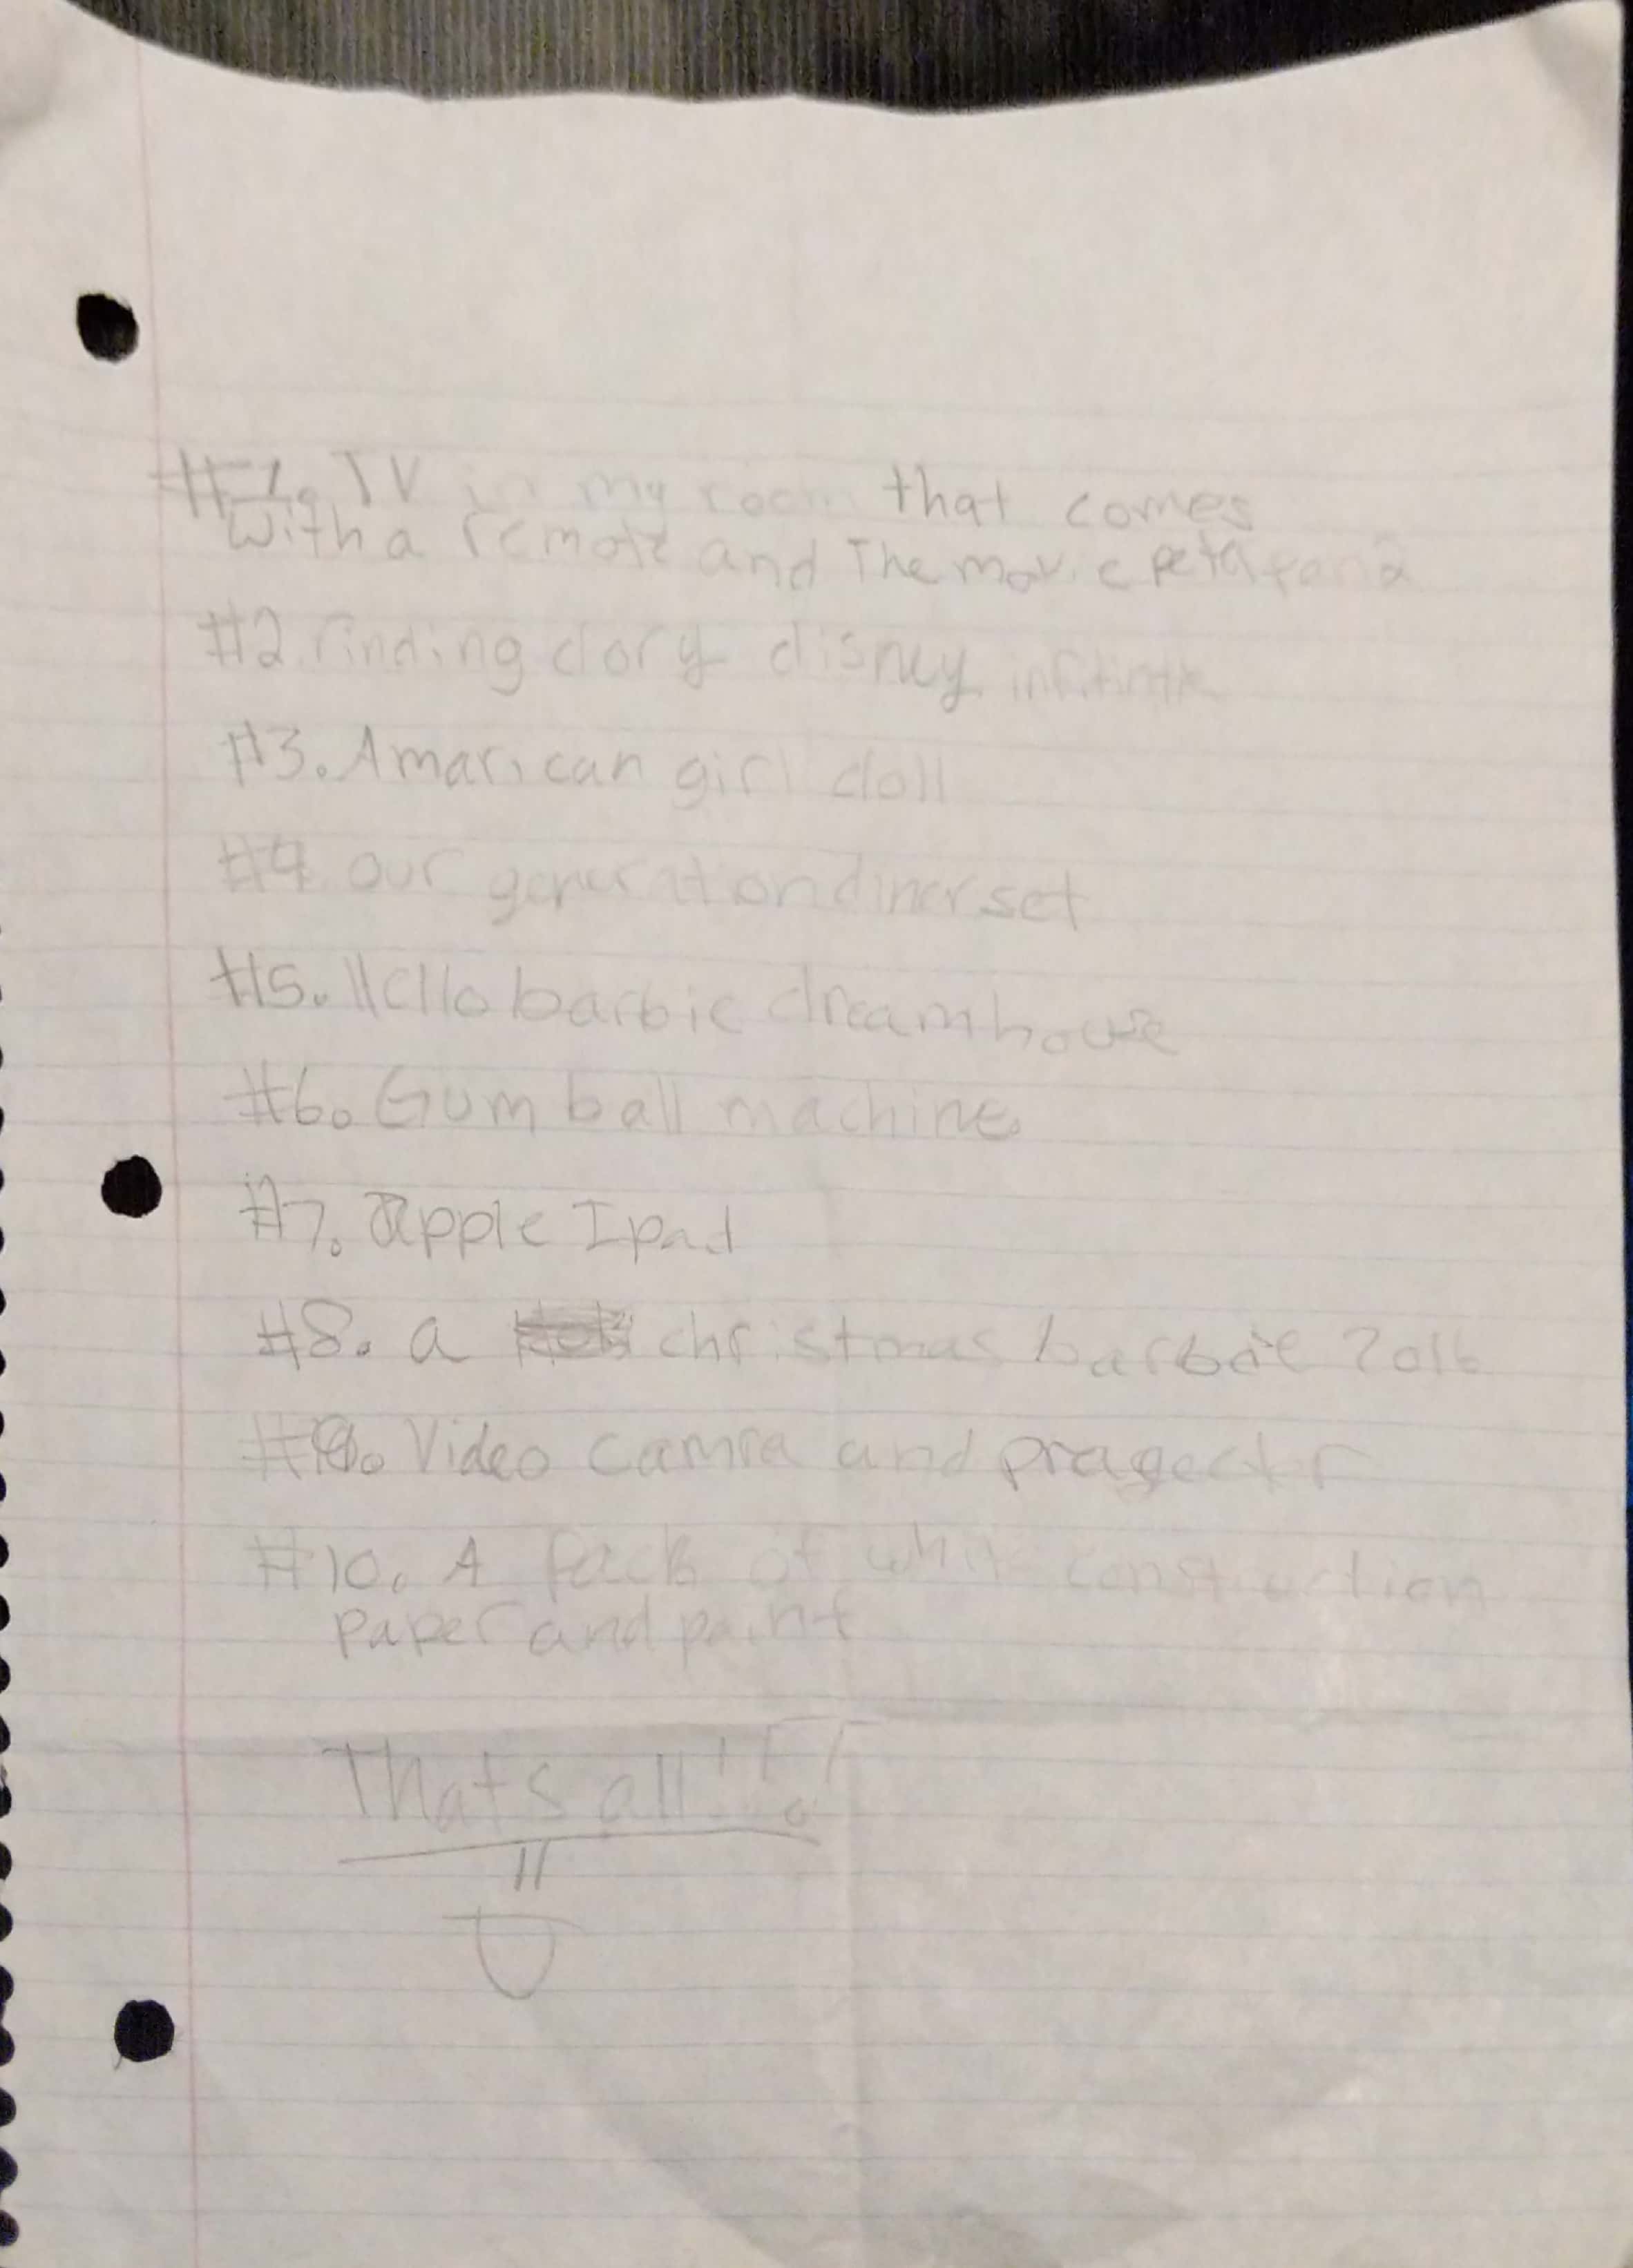 #1. TV in my room that comes
with a remote and The movie peta pan 2
#2. finding dory disney
#3. Amarican girl doll
#4 our generation diner set
#5. Hello barbie dreamhouse
#6. Gum ball machine
#7. apple Ipad
#8. a christmas barbie 2016
#9. Video camra and pragector
#10. A pack of white construction
paper and paint
Thats all!!!